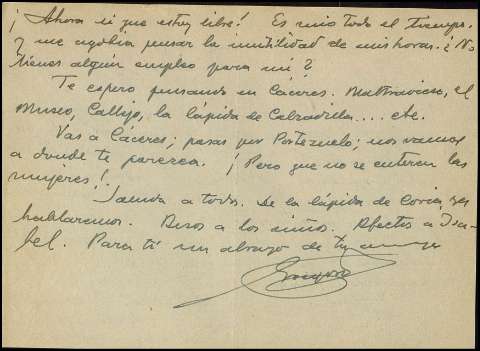 ¡Ahora si que estoy libre! Es mio todo el tiempo.
Y me agobia pensar la inutilidad de mis horas. ¿No
tienes algún empleo para mi?
Te espero pensando en Cáceres. Maltravieso, el
Museo, Callejo, la lápida de Calzadilla.... etc.
Vas a Cáceres; pasas por Portezuelo; nos vamos
a donde te parezca. ¡Pero que no se enteren las
mujeres!
Saluda a todos. De la lápida de Coria, ya
hablaremos. Besos a los niños. Afectos a Isa-
bel. Para tí un abrazo de tu amigo